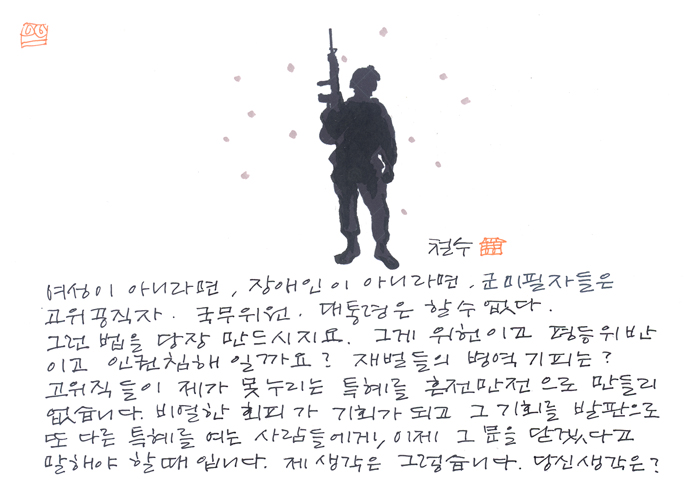 철수
여성이 아니라면, 장애인이 아니라면. 군미필자들은
고위공직자. 국무위원. 대통령은 할 수 없다.
그런 법을 당장 만드시지요. 그게 위헌이고 평등위반
이고 인권침해일까요? 재벌들의 병역기피는?
고위직들이 제가 못누리는 특혜를 흔전만전으로 만들리
없습니다. 비열한 회피가 기회가 되고 그 기회를 발판으로
또 다른 특혜를 여는 사람들에게, 이제 그 문을 닫겠다고
말해야 할 때입니다. 제 생각은 그렇습니다. 당신 생각은?